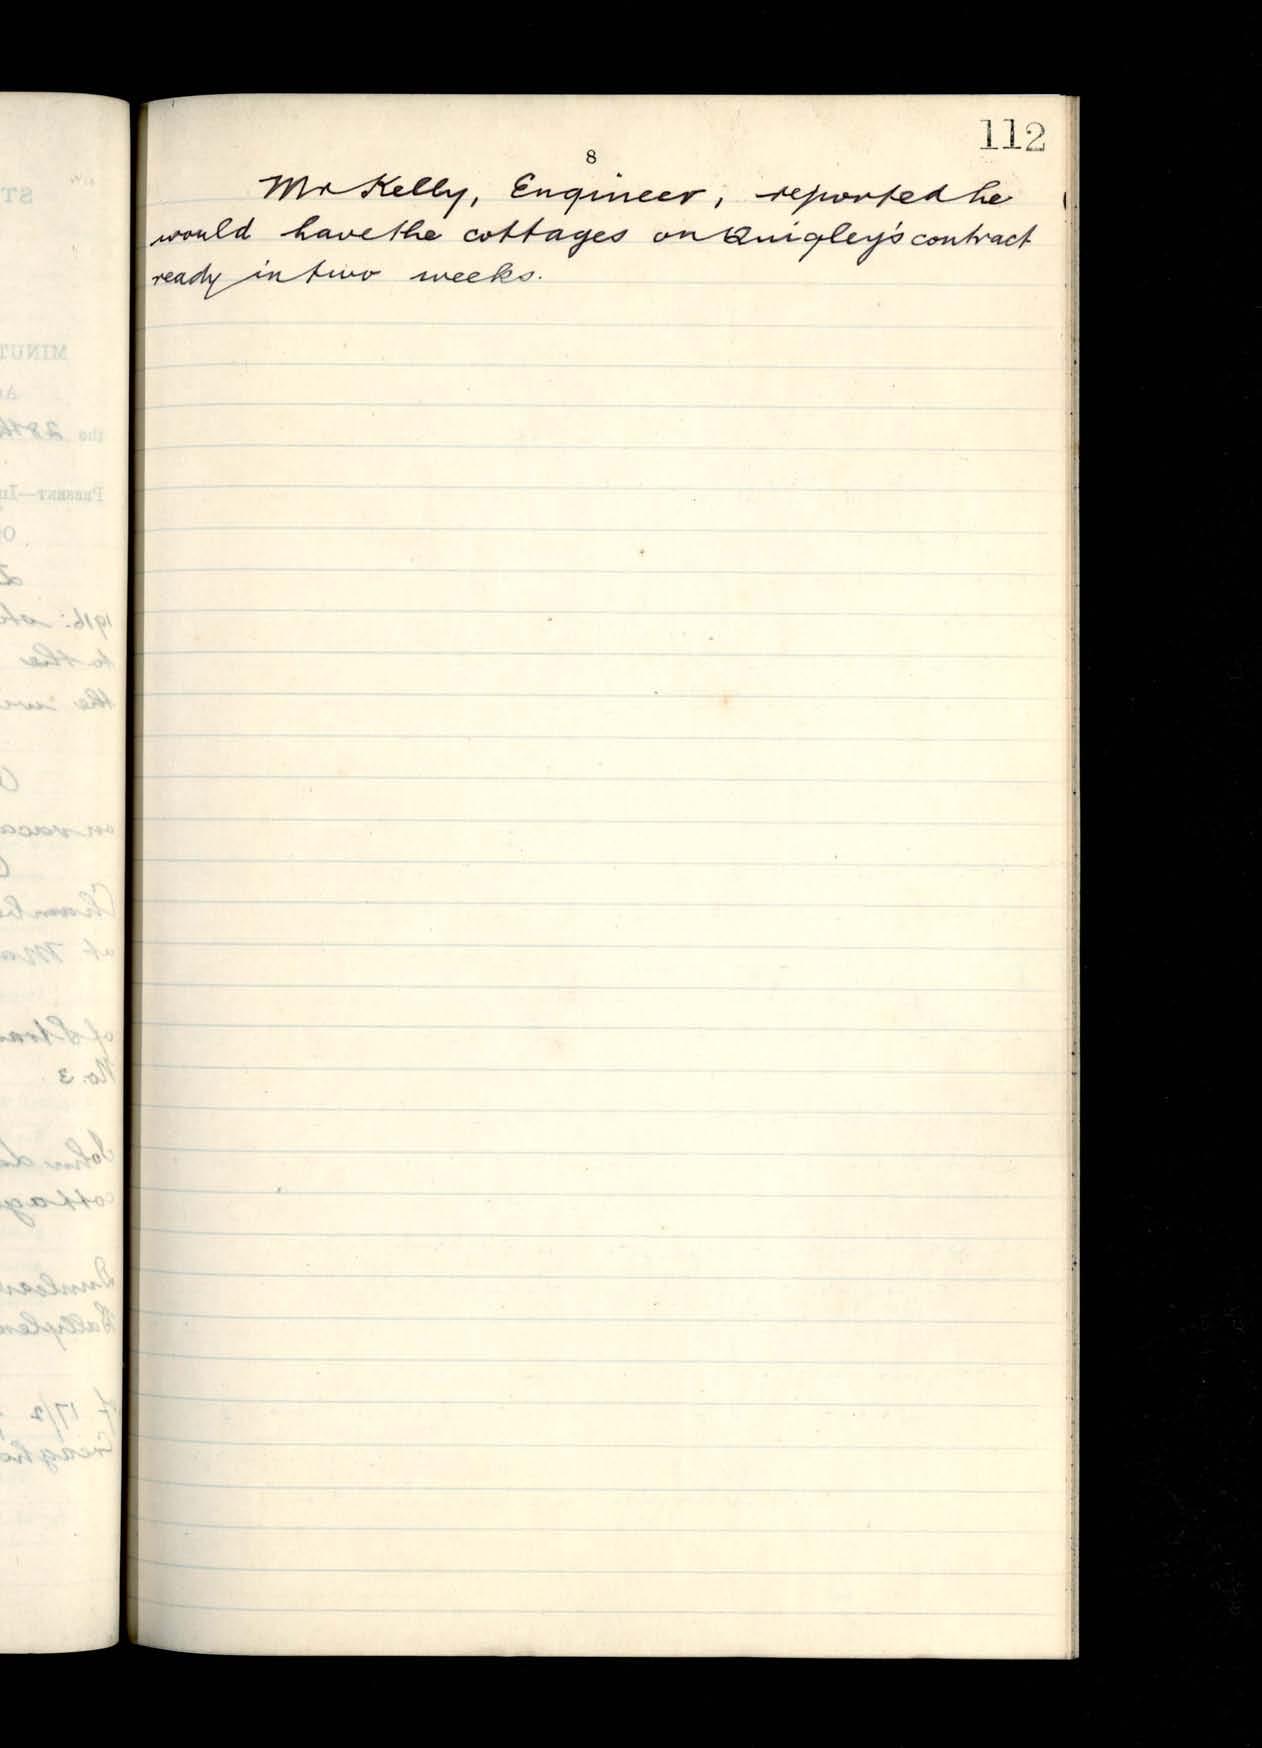 112
8
Mr Kelly, Engineer, reported he
would have the cottages on Quigley's contract
ready in two weeks.